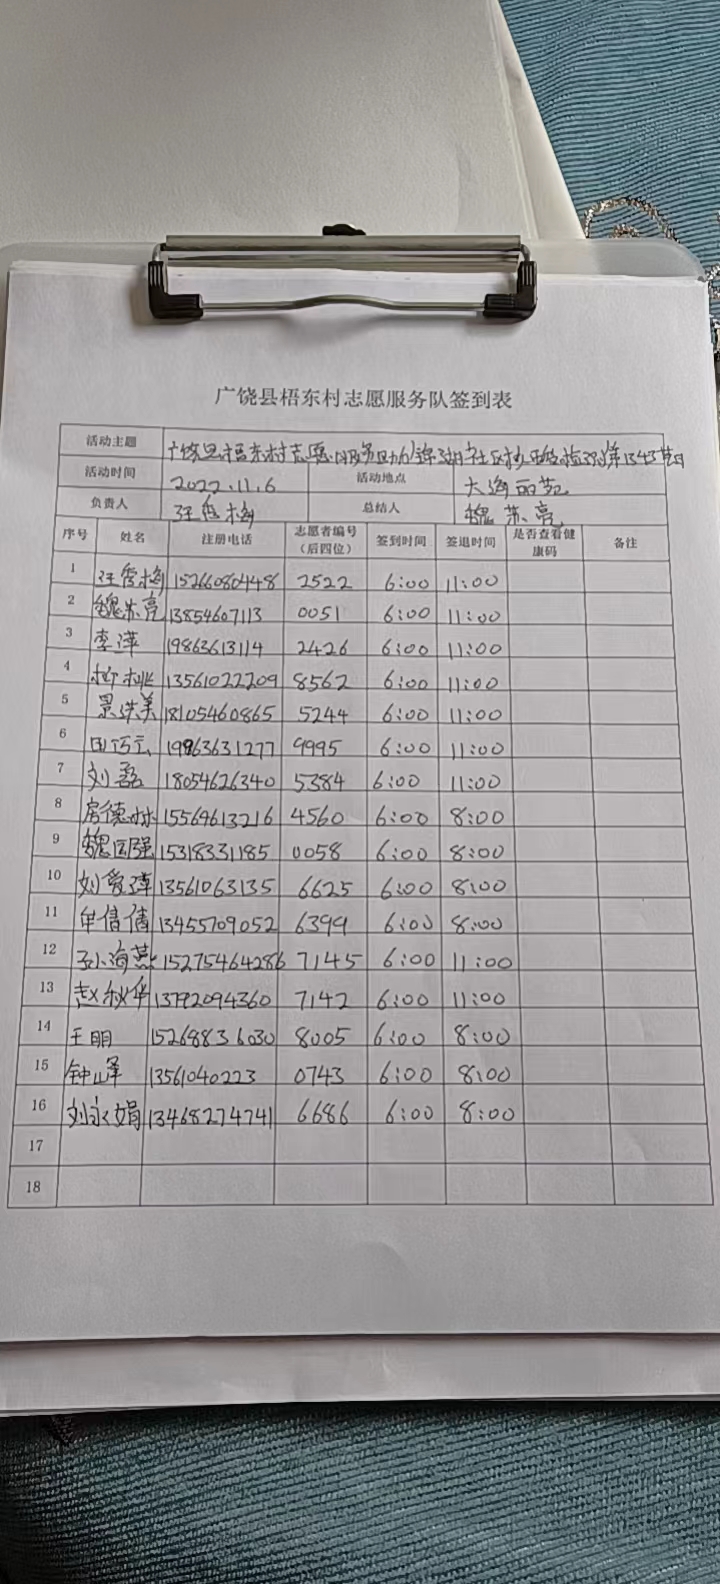 广饶县梧东村志愿服务队签到表
活动主题 广饶县梧东村志愿服务队助力锦湖社区核酸检测第1343期
活动时间 2022.11.6 活动地点 大海丽苑
负责人 汪雪梅 总结人 魏苏亮
序号 姓名 注册电话 志愿者编号（后四位） 签到时间 签退时间 是否查看健康码 备注
1 汪雪梅 15266080448 2522 6:00 11:00
2 魏苏亮 13854607113 0051 6:00 11:00
3 李萍 19863613114 2426 6:00 11:00
4 柳桃 13561022209 8562 6:00 11:00
5 景洪美 18105460865 5244 6:00 11:00
6 田巧云 19863631277 9995 6:00 11:00
7 刘磊 18054626340 5384 6:00 11:00
8 房德林 15569613216 4560 6:00 8:00
9 魏国强 15318331185 0058 6:00 8:00
10 刘爱萍 13561063135 6625 6:00 8:00
11 单倩倩 13455709052 6399 6:00 8:00
12 孙海燕 15275464286 7145 6:00 11:00
13 赵秋华 13792094360 7142 6:00 11:00
14 王朋 15268836030 8005 6:00 8:00
15 钟山峰 13561040223 0743 6:00 8:00
16 刘永娟 13468274741 6686 6:00 8:00
17
18